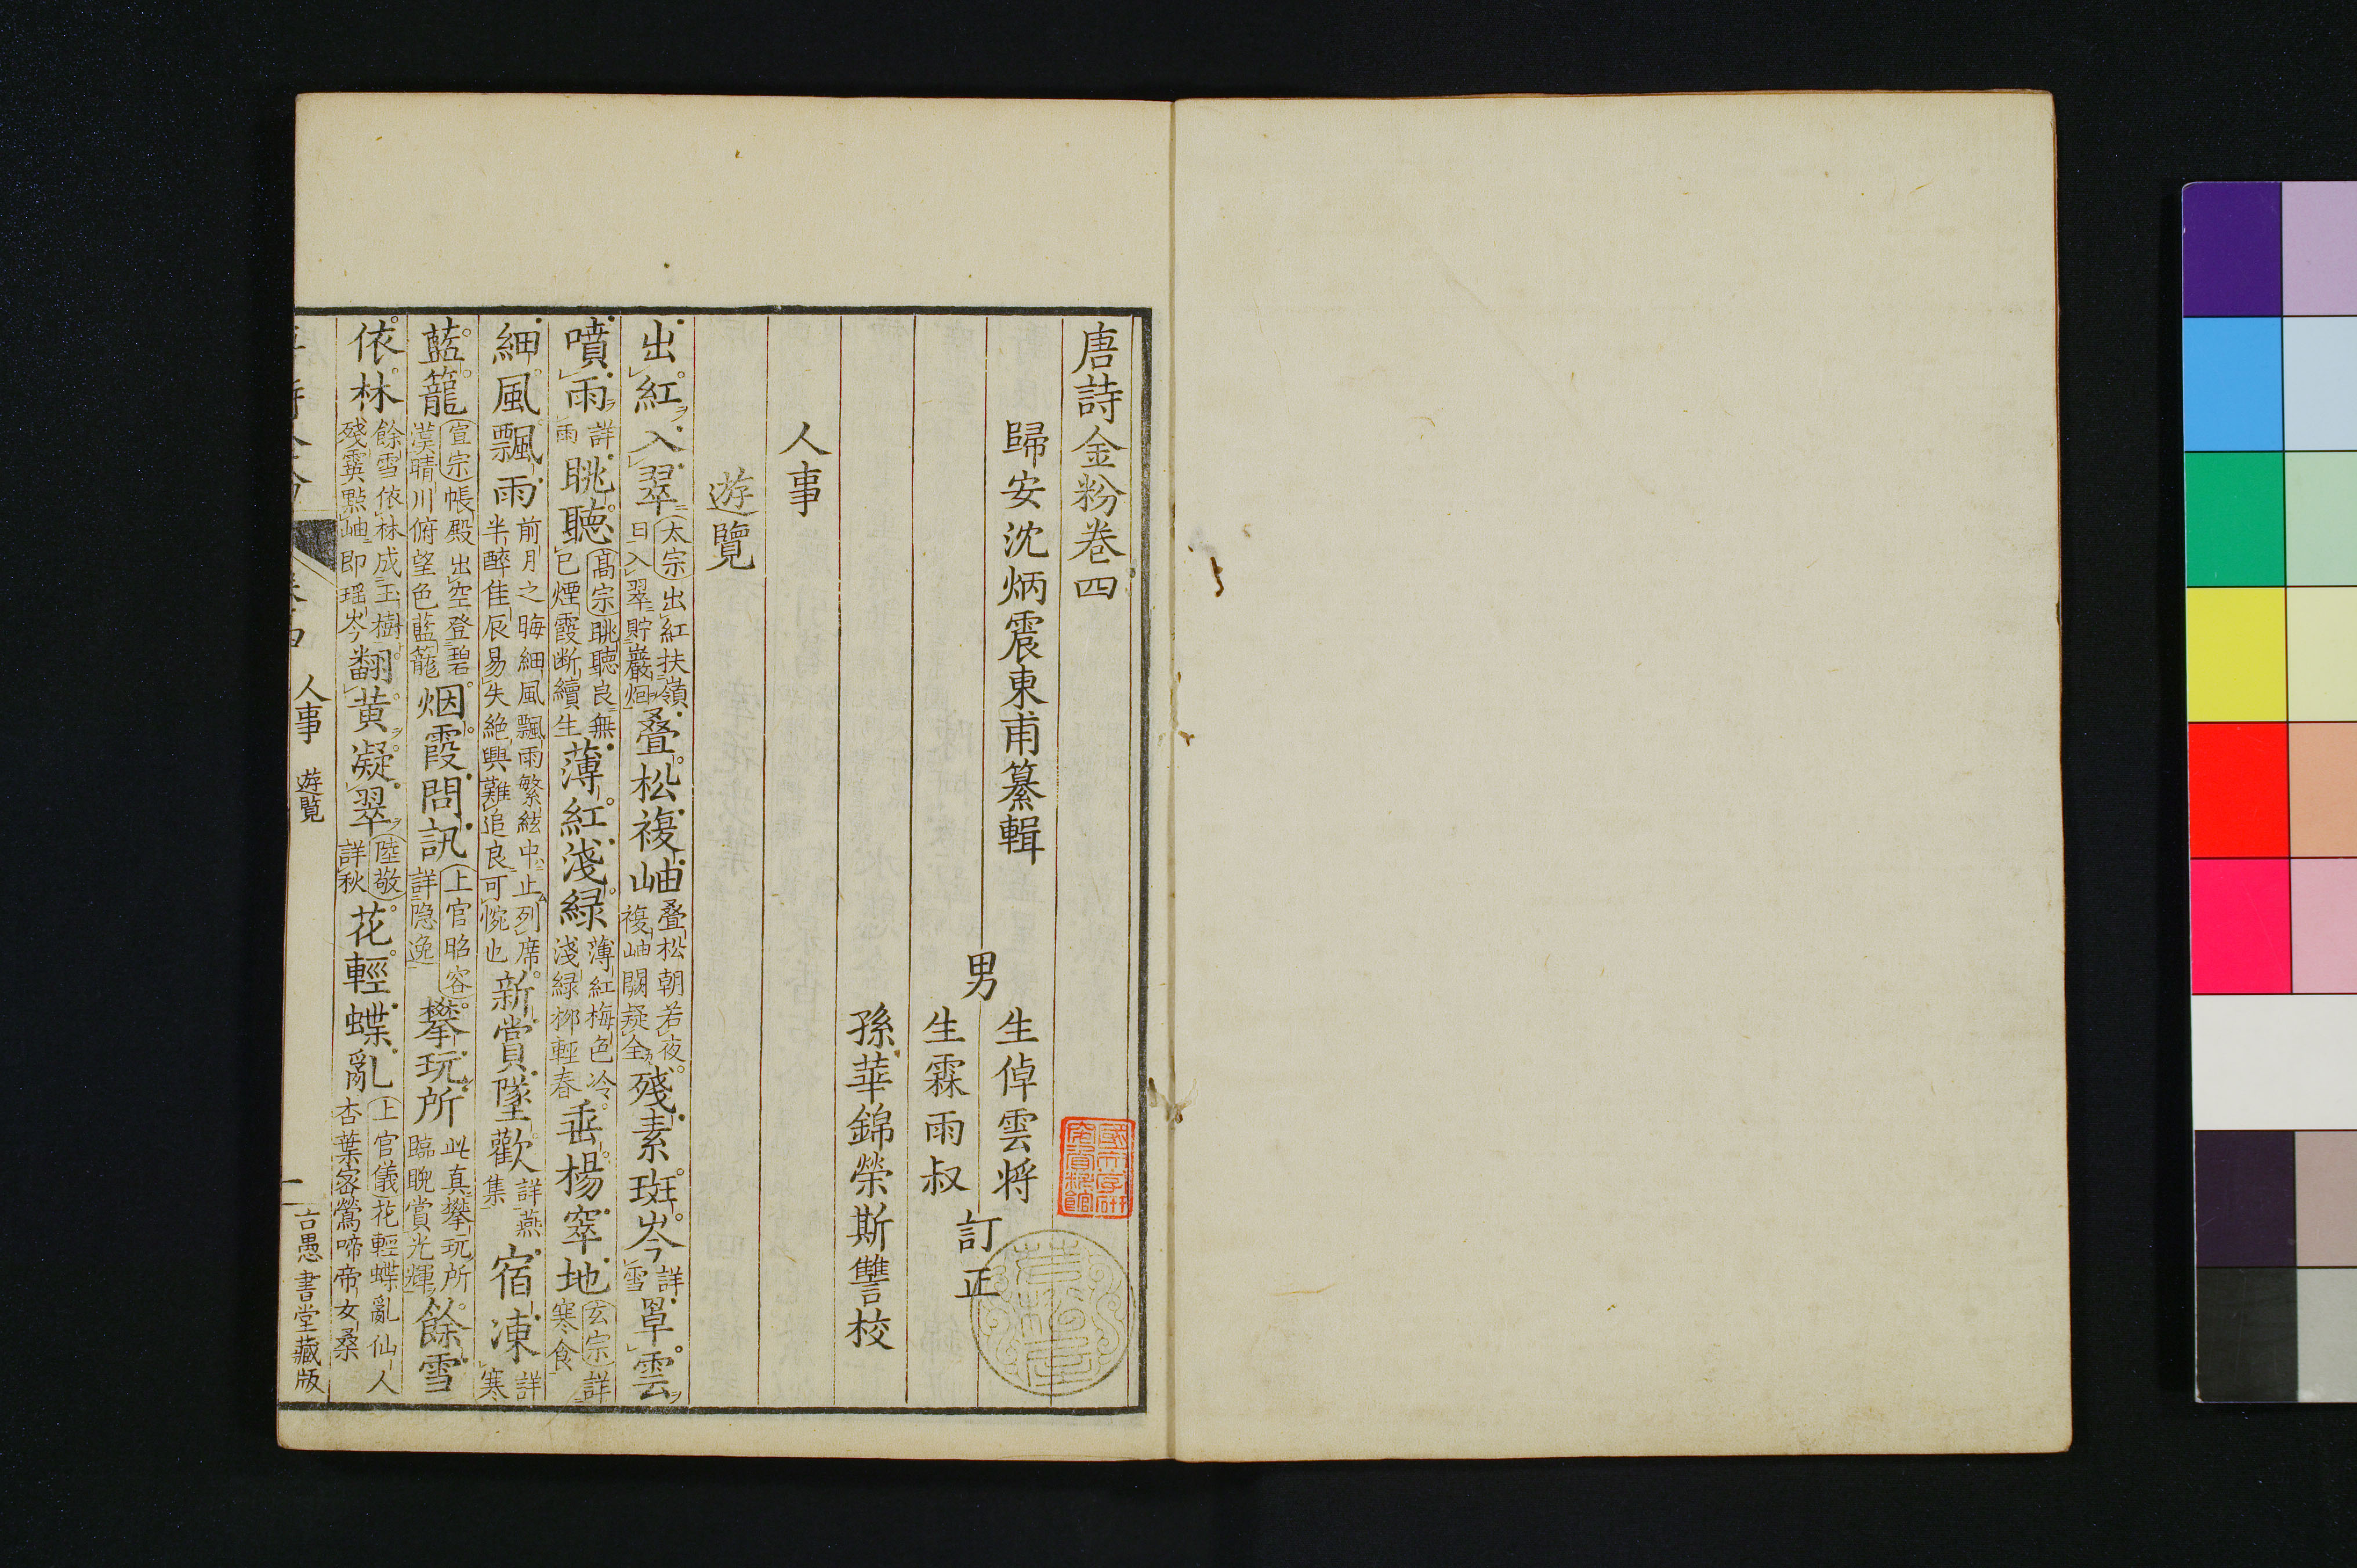 唐詩金粉卷四
歸安沈炳震東甫纂輯
男
生倬雲将
生霖雨叔
訂正
孫華錦榮斯讐校
人事
遊覽
出紅入翠太宗出紅扶嶺日入翠貯巖烟叠松複岫叠松朝若夜複岫闕疑全殘素斑岑詳雪罩雲
噴雨詳雨眺聽高宗眺聽良無已煙霞断續生薄紅淺緑薄紅梅色冷淺緑柳輕春垂楊窣地玄宗詳寒食
細風飄雨前月之晦細風飄雨繁絃中止列席半醉佳辰易失絶興難追良可惋也新賞墜歡詳燕集宿凍詳寒
藍籠宣宗帳殿出空登碧漢晴川俯望色藍籠烟霞問訊上官昭容詳隐逸攀玩所此真攀玩所臨睨賞光輝餘雪
依林餘雪依林成玉樹殘霙點岫即瑶岑翻黄凝翠陸敬詳秋花輕蝶亂上官儀花輕蝶亂仙人杏葉密鶯啼帝女桑
人事 遊覧
一
古愚書堂藏版